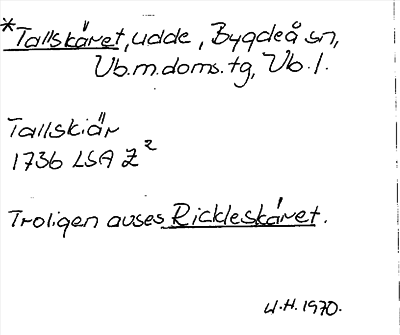 *Tallskäret, udde, Bygdeå sn,
Vb.m.doms.tg, Vb.l.
Tallskiär
1736 LSA Z²
Troligen avses Rickleskäret.
W.H. 1970.